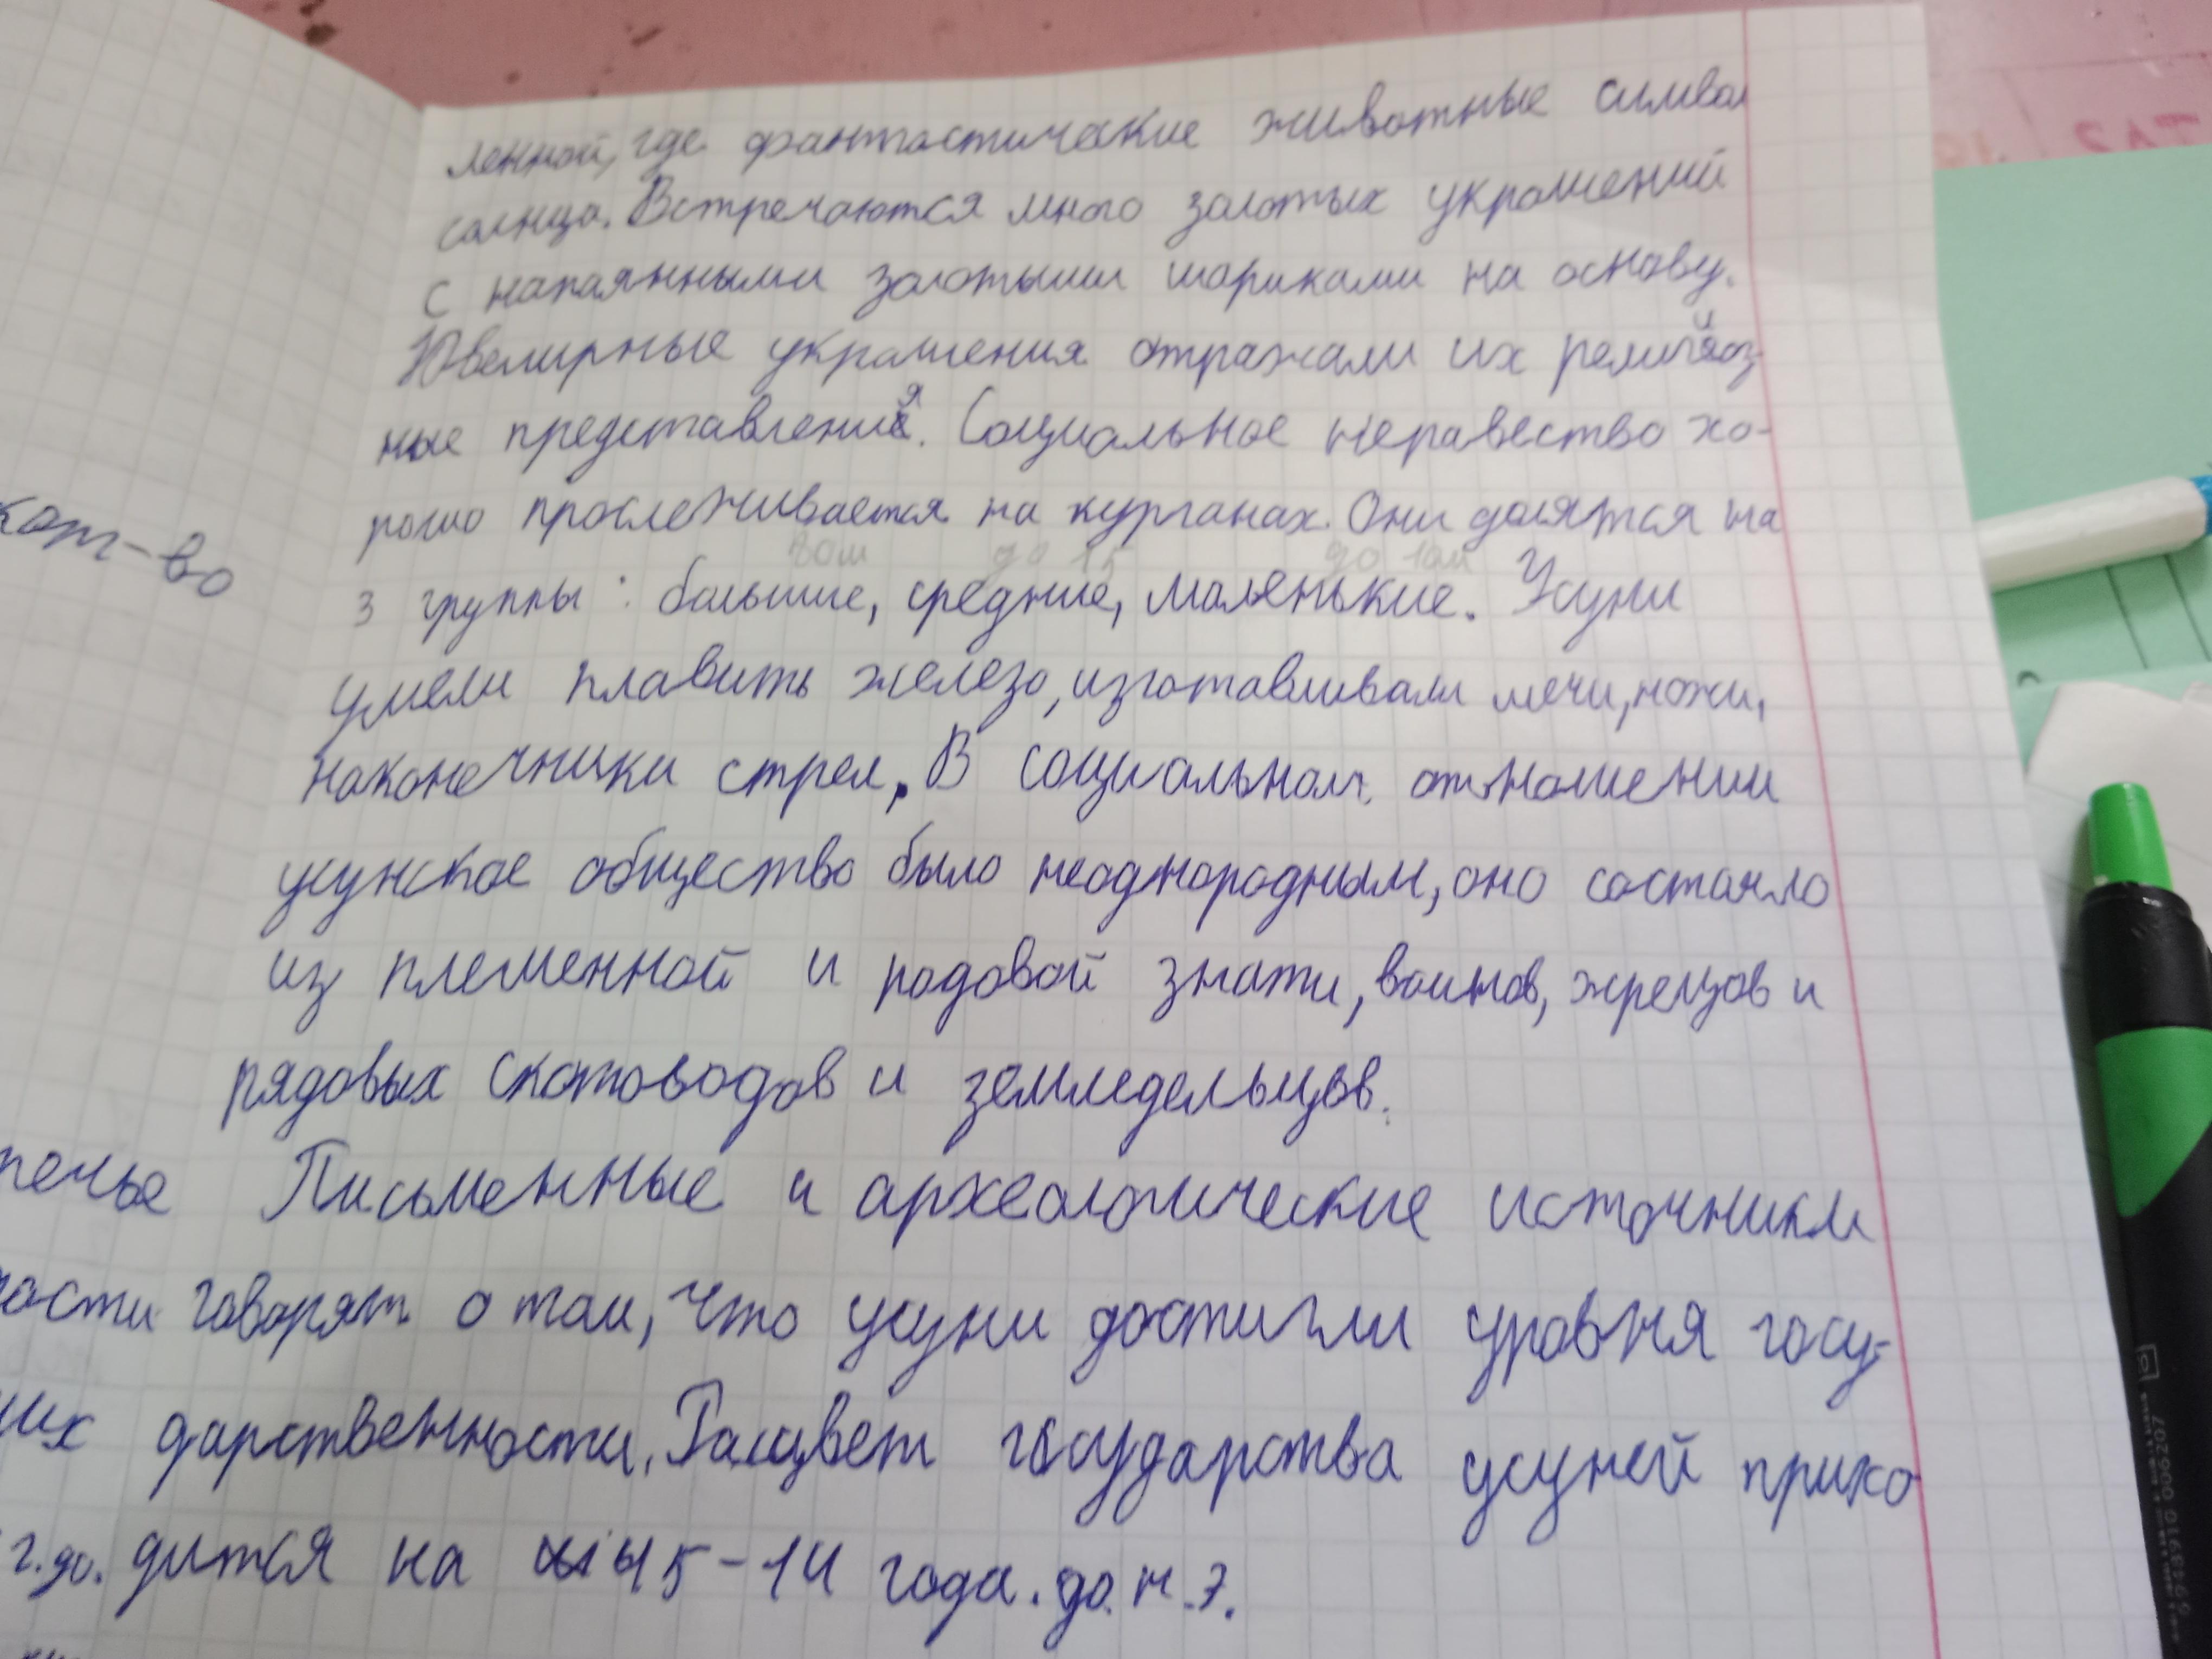 ленной, где фантастические животные символ
солнца. Встречаются много золотых украшений
с напаянными золотыми шариками на основу.
Ювелирные украшения отражали их религиоз
ные представления. Социальное неравество хо-
рошо прослеживается на курганах. Они делятся на
до 15 до 10м
3 группы: большие, средние, маленькие. Усуни
умели плавить железо, изготавливали мечи, ножи,
наконечники стрел. В социальном отношении
усунское общество было неоднородным, оно состояло
из племенной и родовой знати, воинов, жрецов и
рядовых скотоводов и земледельцов.
Письменные и археологические источники
говорят о том, что усуни достигли уровня госу-
дарственности. Расцвет государства усуней прихо
дится на 45-14 года. до. н.э.
кот-во
речье
ности
ших
г.до.